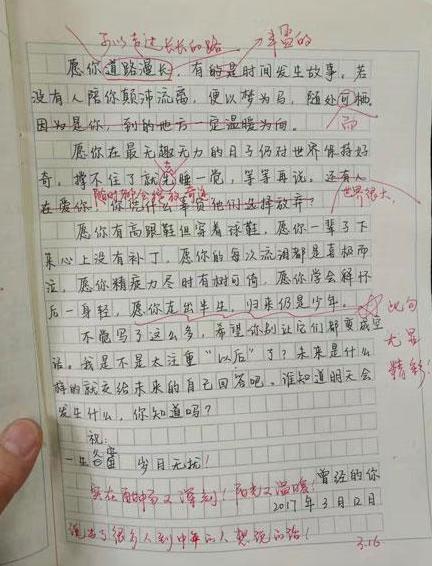 可以走过长长的路
丰盈的
愿你道路漫长，有的是时间发生故事，若
没有人陪你颠沛流离，便以梦为马，随处可栖
因为是你，到的地方一定温暖为向。
而
愿你在最无趣无力的日子仍对世界保持好
奇，撑不住了就先睡一觉，等等再说，还有人
随时都会绽放奇迹
世界很大，
在爱你，你凭什么辜负他们选择放弃？
愿你有高跟鞋但穿着球鞋，愿你一辈子下
来心上没有补丁，愿你的每次流泪都是喜极而
泣，愿你精疲力尽时有树可倚，愿你学会释怀
后一身轻，愿你走出半生，归来仍是少年。
此句
无比
精彩！
不觉写了这么多，希望你别让它们都变成空
话。我是不是太注重“以后”了？未来是什么
样的就交给未来的自己回答吧，谁知道明天会
发生什么，你知道吗？
祝：
一生 岁月无扰！
曾经的你
实在 又深刻！ 又温暖！
2017年3月12日
说出了很多人到中年的人想说的话！
3.16